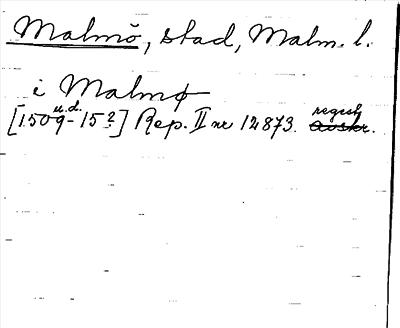 Malmö, stad, Malm. l.
i Malmø
u.d. regest
[1509-15?] Rep. II nr 12873. avskr.